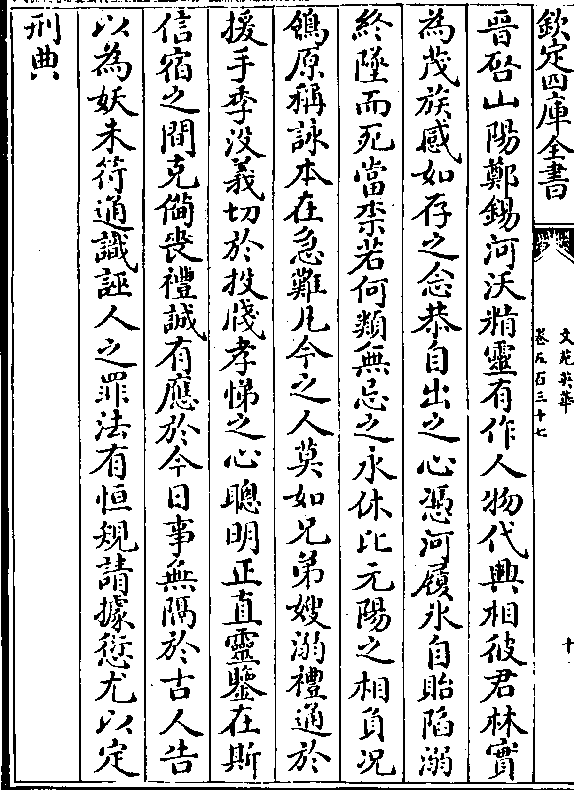 欽定四庫全書
文苑英華
卷五百三十七
十
晉啓山陽鄭錫河沃精靈有作人物代興相彼君林實
為茂族感如存之念恭自出之心憑河履氷自貽陷溺
終墜而死當柰若何類無忌之永休比元陽之相負况
鴒原稱詠本在急難凡今之人莫如兄弟嫂溺禮通於
援手季没義切於投牋孝悌之心聰明正直靈鑒在斯
信宿之間克備喪禮誠有應於今日事無隔於古人告
以為妖未符通識誣人之罪法有恒規請據愆尤以定
刑典